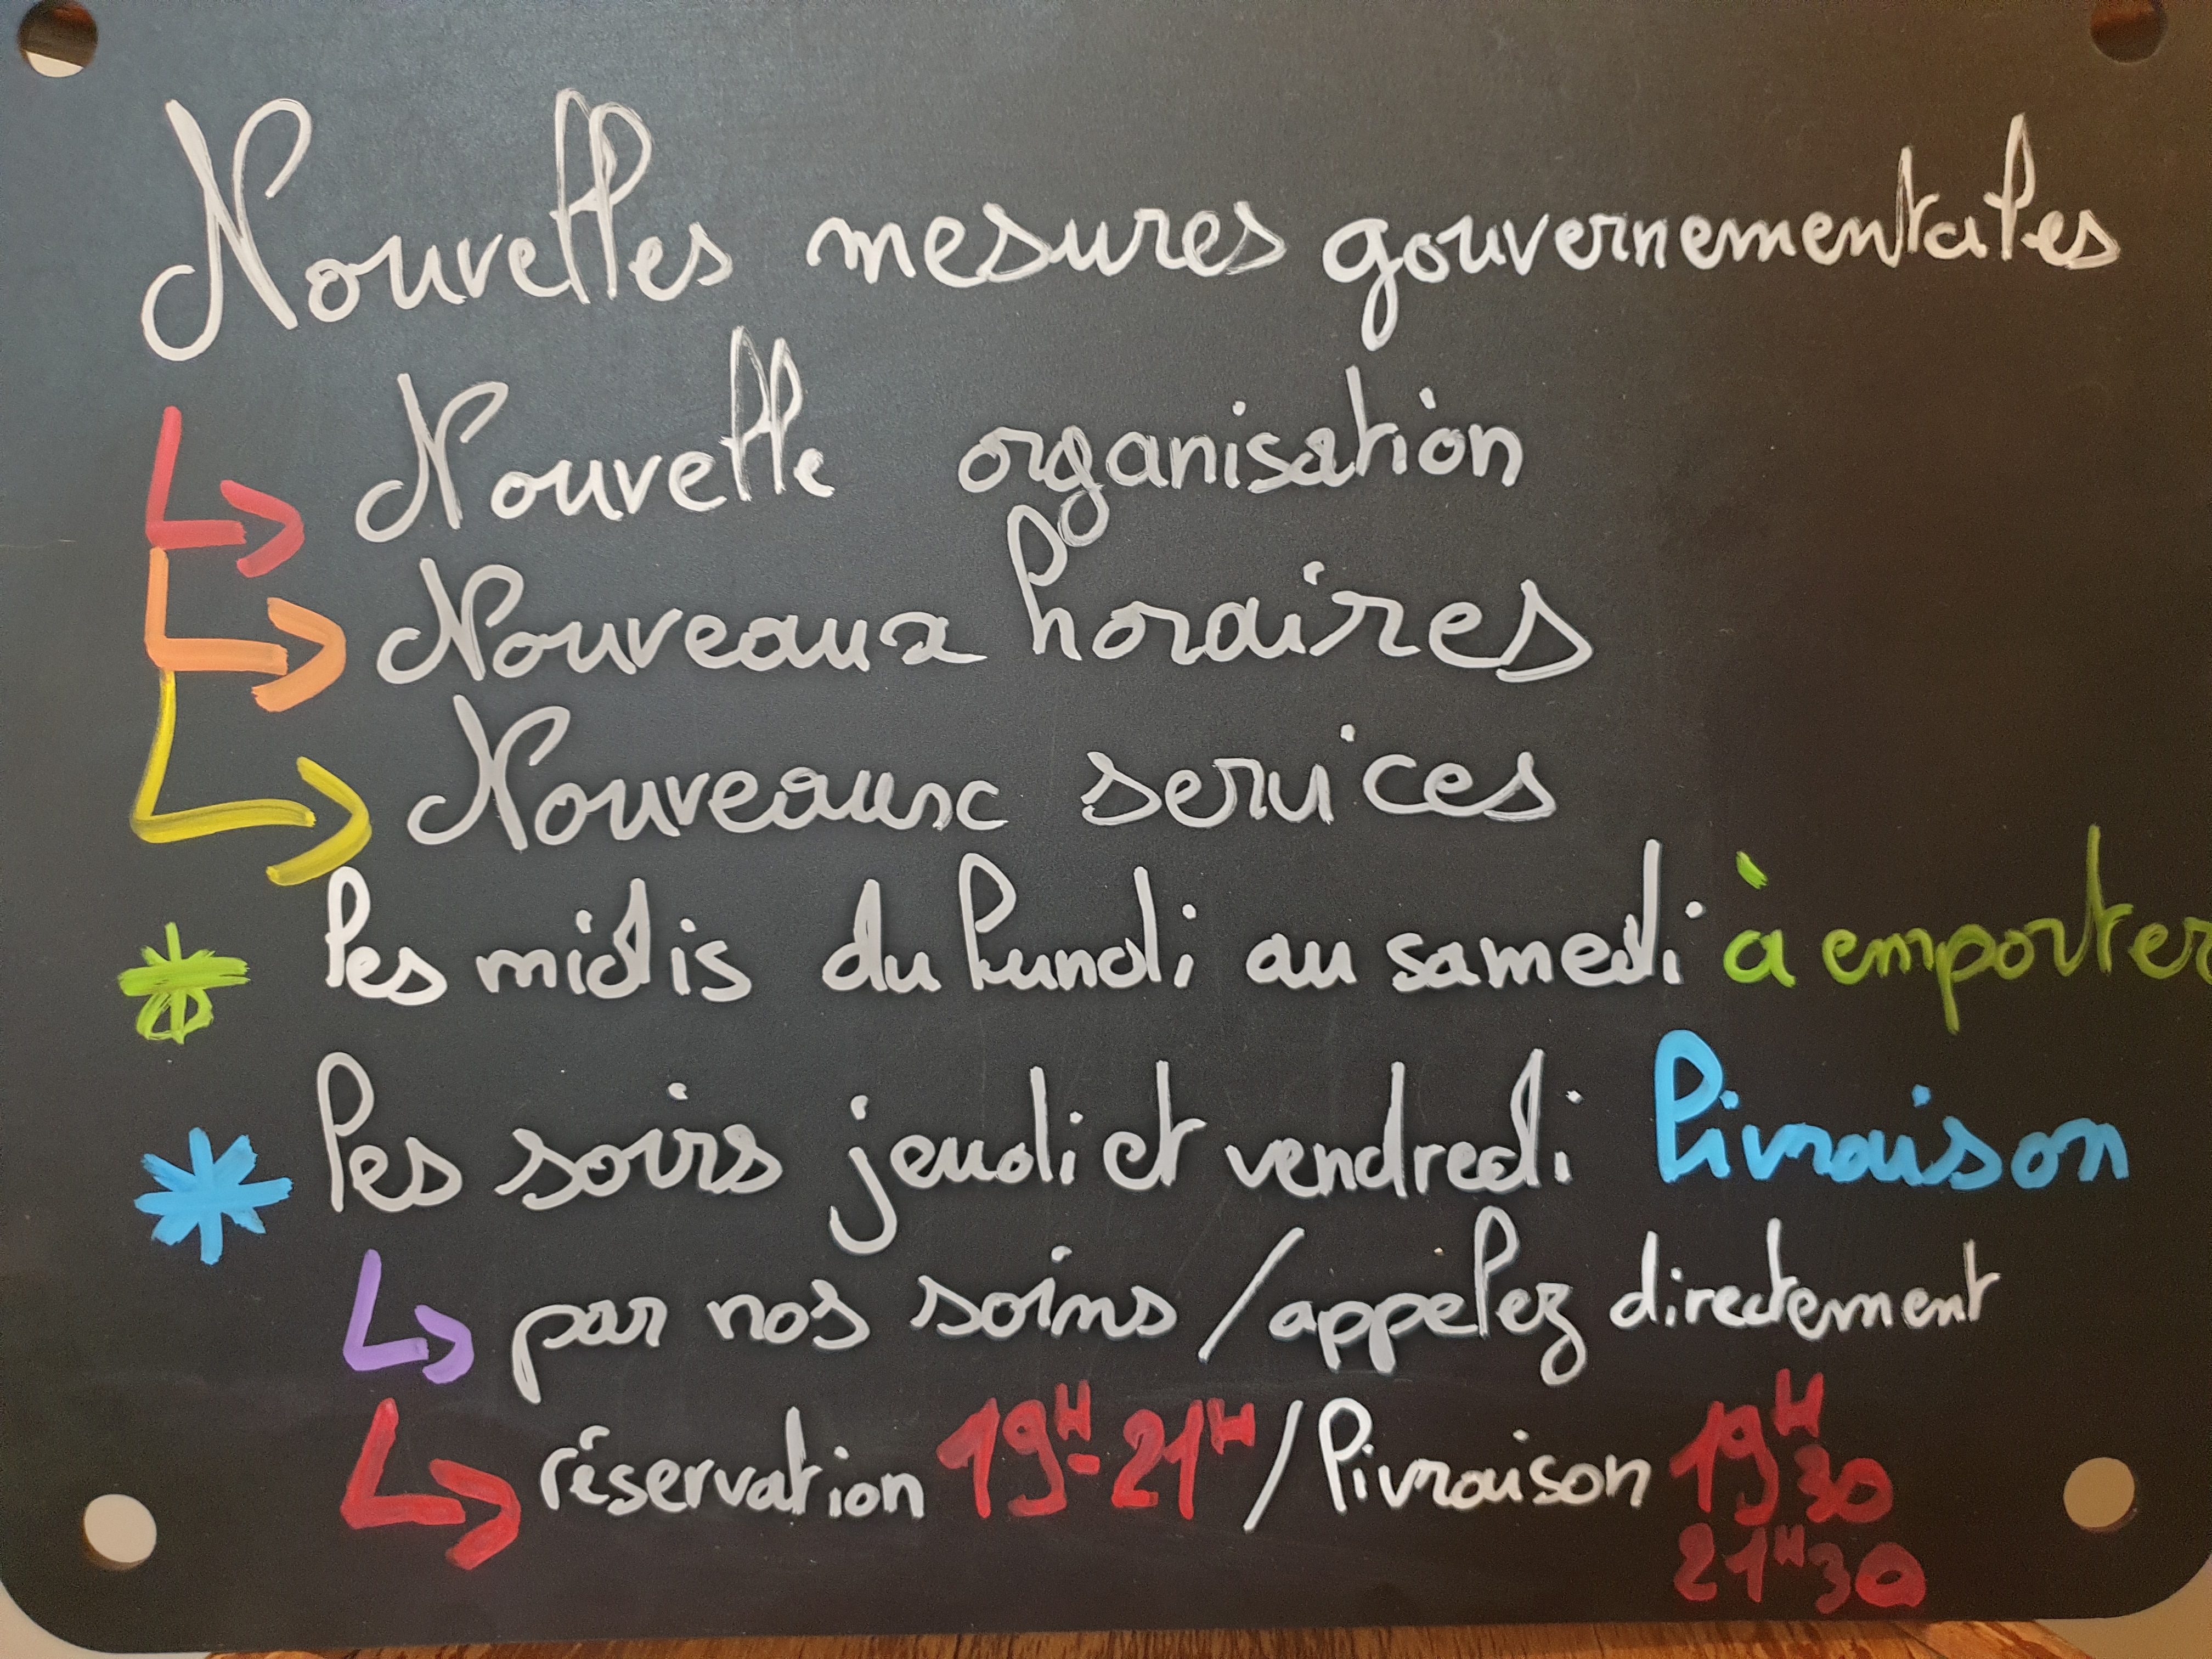 Nouvelles mesures gouvernementales
Nouvelle organisation
Nouveaux horaires
Nouveaux services
les midis du lundi au samedi à emporter
les soirs jeudi et vendredi livraison
par nos soins / appelez directement
réservation 19H-21H / livraison 19H30
21H30